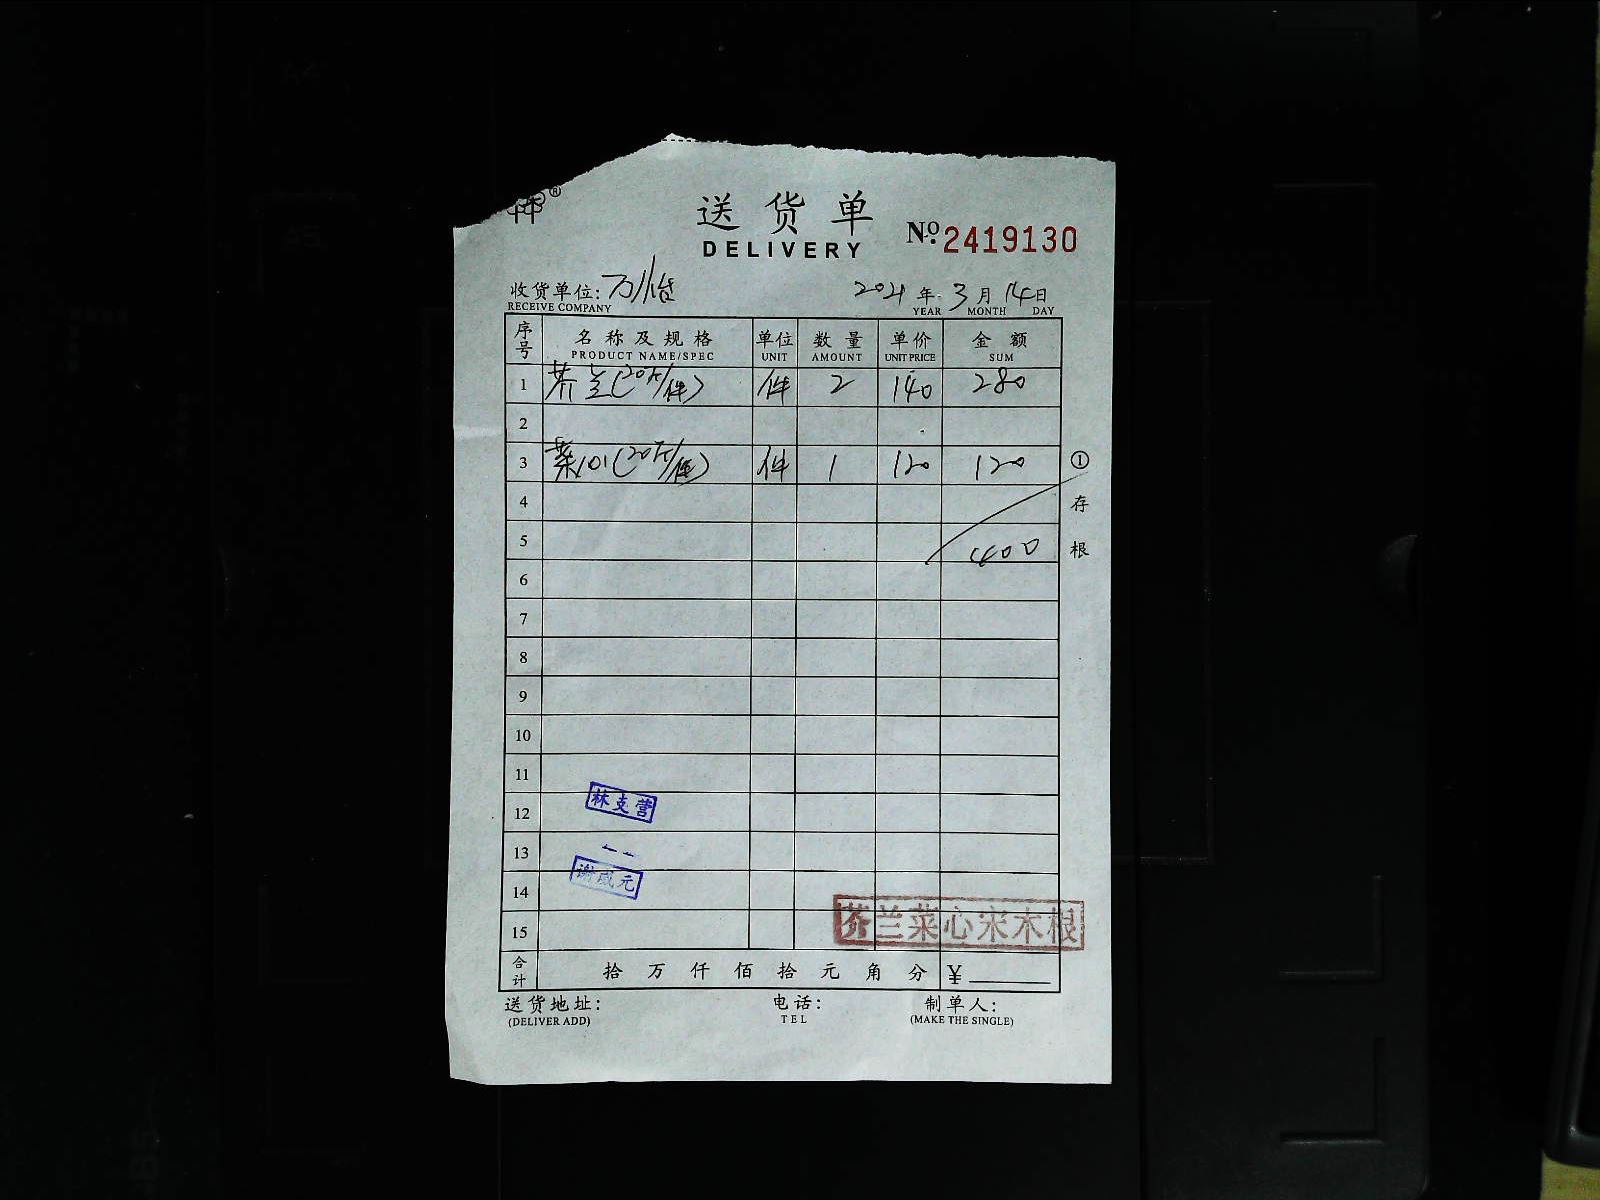 送货单
DELIVERY
№ 2419130
收货单位: 万怡
RECEIVE COMPANY
2021 年 3 月 14 日
YEAR MONTH DAY
序号 名称及规格 单位 数量 单价 金额
PRODUCT NAME/SPEC UNIT AMOUNT UNIT PRICE SUM
1 芥兰(20斤/件) 件 2 140 280
2
3 菜心(20斤/件) 件 1 120 120
4
5 400
6
7
8
9
10
11
12
13
14
15
① 存根
林支营
谢成元
芥兰菜心宋木根
合计 拾 万 仟 佰 拾 元 角 分 ¥
送货地址: 电话: 制单人:
(DELIVER ADD) TEL (MAKE THE SINGLE)